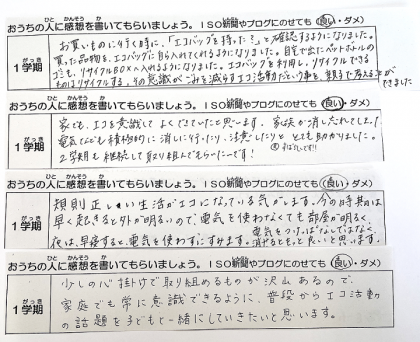 おうちの人に感想を書いてもらいましょう。ISO新聞やブログにのせても(良い・ダメ)
1学期
お買いものに行く時に、「エコバッグを持った？」と確認するようになりました。
買った品物を、エコバッグに自ら入れてくれるようになりました。自宅で出たペットボトルの
ゴミも、リサイクルBOXへ入れるようになりました。エコバッグを利用し、リサイクルできる
ものはリサイクルする、その意識がごみを減らすエコ活動だという事を、親子で考える事が
できました
おうちの人に感想を書いてもらいましょう。ISO新聞やブログにのせても(良い・ダメ)
1学期
家でも、エコを意識して よくできていたと思います。家族が消し忘れてした
電気なども積極的に 消しに行ったり、注意したりと とても助かりました。
2学期も継続して取り組んでもらいたいです!
おうちの人に感想を書いてもらいましょう。ISO新聞やブログにのせても(良い・ダメ)
1学期
規則正しい生活がエコになっている気がします。今の時期は
早く起きると外が明るいので、電気を使わなくても部屋が明るく、
夜は早寝すると、電気を使わずにすみます。
電気をつけっぱなしではなく、
消灯するともっと良いと思います。
おうちの人に感想を書いてもらいましょう。ISO新聞やブログにのせても(良い・ダメ)
1学期
少しの心掛けで取り組めるものが沢山あるので、
家庭でも常に意識できるように、普段からエコ活動
の話題を子どもと一緒にしていきたいと思います。